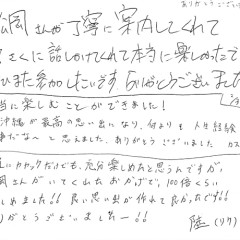 ありがとうござい
松岡さんが丁寧に案内してくれて
さくに話しかけてくれて本当に楽しかったで
ひまた参加したいです ありがとうございました
当に楽しむことができました!
沖縄が最高の思い出になり、何よりも人生経験
事だな〜と思えました、ありがとうございました
カヤックだけでも、充分楽しめたと思うんですが、
岡さんがいてくれたおかげで、100倍くらい
しめました!! 良い思い出が作れて良かったです!!
りがとうございましたー!!
陸(リク)